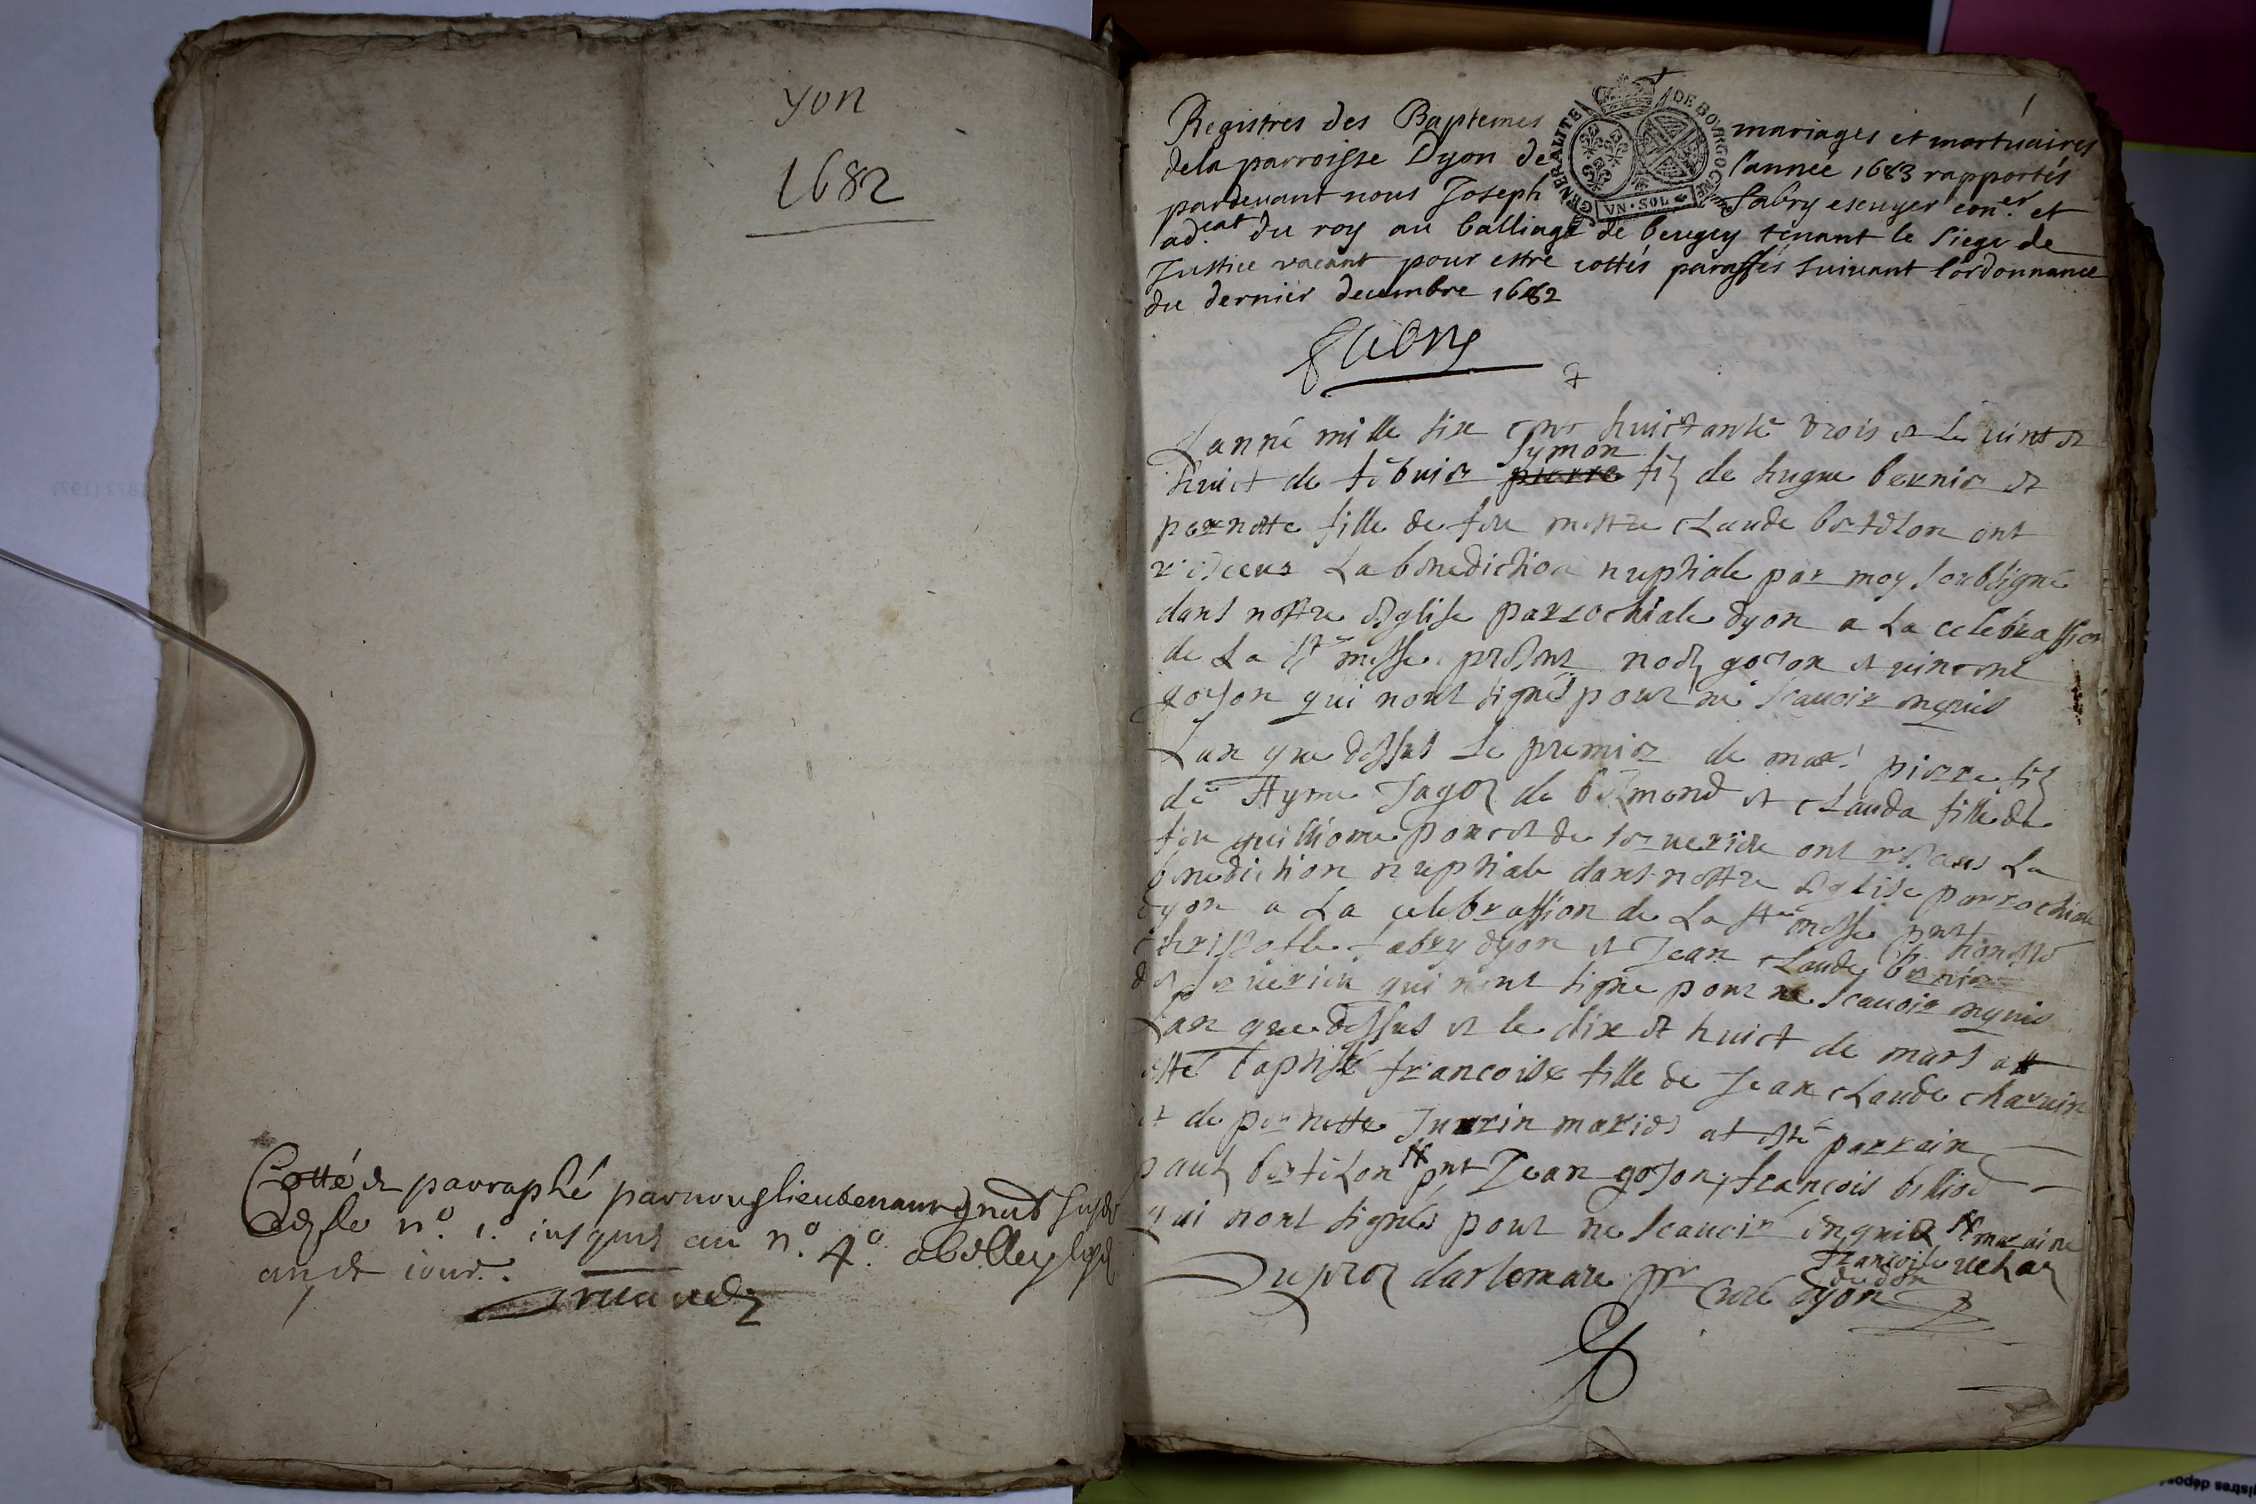 yon
1682
Cotté et parraphé par nous lieutenant
des le n.º 1.º iusques au n.º 4.º a belley
an et iour.
Registres des Baptemes mariages et mortuaires
de la parroisse Dyon de l'année 1683 rapportés
pardevant nous Joseph fabry escuyer con.er et
ad.cat du roy au balliage de beugey tenant le siege de
Justice vacant pour estre cottés paraffés suivant l'ordonnance
du dernier decembre 1682
fabry
GENERALITE DE BOVRGOGNE
VN·SOL
1
Lanné mille six cent huictante trois et le vint et
Symon
huict de febvier pierre filz de hugue bernier et
pernette fille de feu mettre Claude bertelon ont
receus La benediction nuptiale par moy soubsigné
dans nottre Eglise parrochiale dyon a La celebrassion
de La ste messe present goion et vincent
goion qui nont signés pour ne scavoir enquis
Lan que dessus Le premier de mar pierre filz
de Ayme Jagoz de et Clauda fille de
feu guilliome poncet de ont receus La
benediction nuptiale dans nottre Eglise parrochiale
dyon a La celebrassion de La ste messe pnt honeste
christofle fabry dyon et Jean Claude bernier
qui nont signe pour ne scavoir enquis
Lan que dessus et le dix et huict de mars at
esté baptisé francoise fille de Jean Claude charvin
et de pernette Jurrin mariés at esté parrain
paul bertelon pnt Jean goion, francois billiod
qui nont signés pour ne scavoir enquis maraine
francoise
Cure dyon